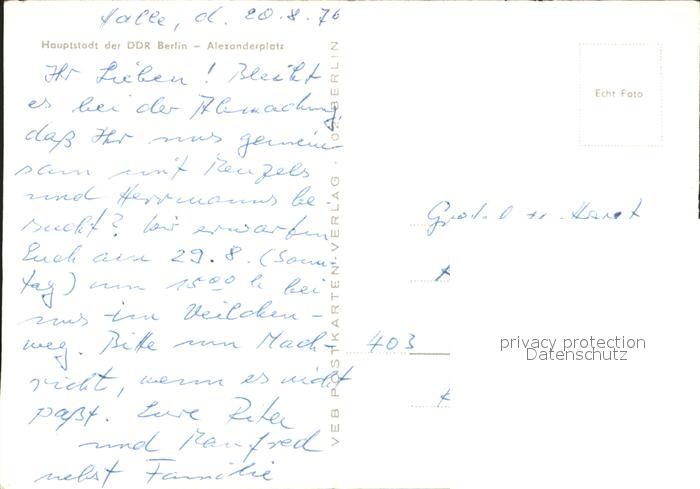 Halle, d. 20.8.76
Hauptstadt der DDR Berlin – Alexanderplatz
Ihr Lieben! Bleibt
es bei der Abmachung,
daß Ihr uns gemein-
sam mit Menzels
und Herrmanns be-
sucht? Wir erwarten
Euch am 29.8. (Sonn-
tag) um 15⁰⁰ h bei
uns im Veilchen-
weg. Bitte um Nach-
richt, wenn es nicht
paßt. Eure Rita
und Manfred
nebst Familie
VEB POSTKARTEN-VERLAG · 102 BERLIN
Echt Foto
403
privacy protection
Datenschutz